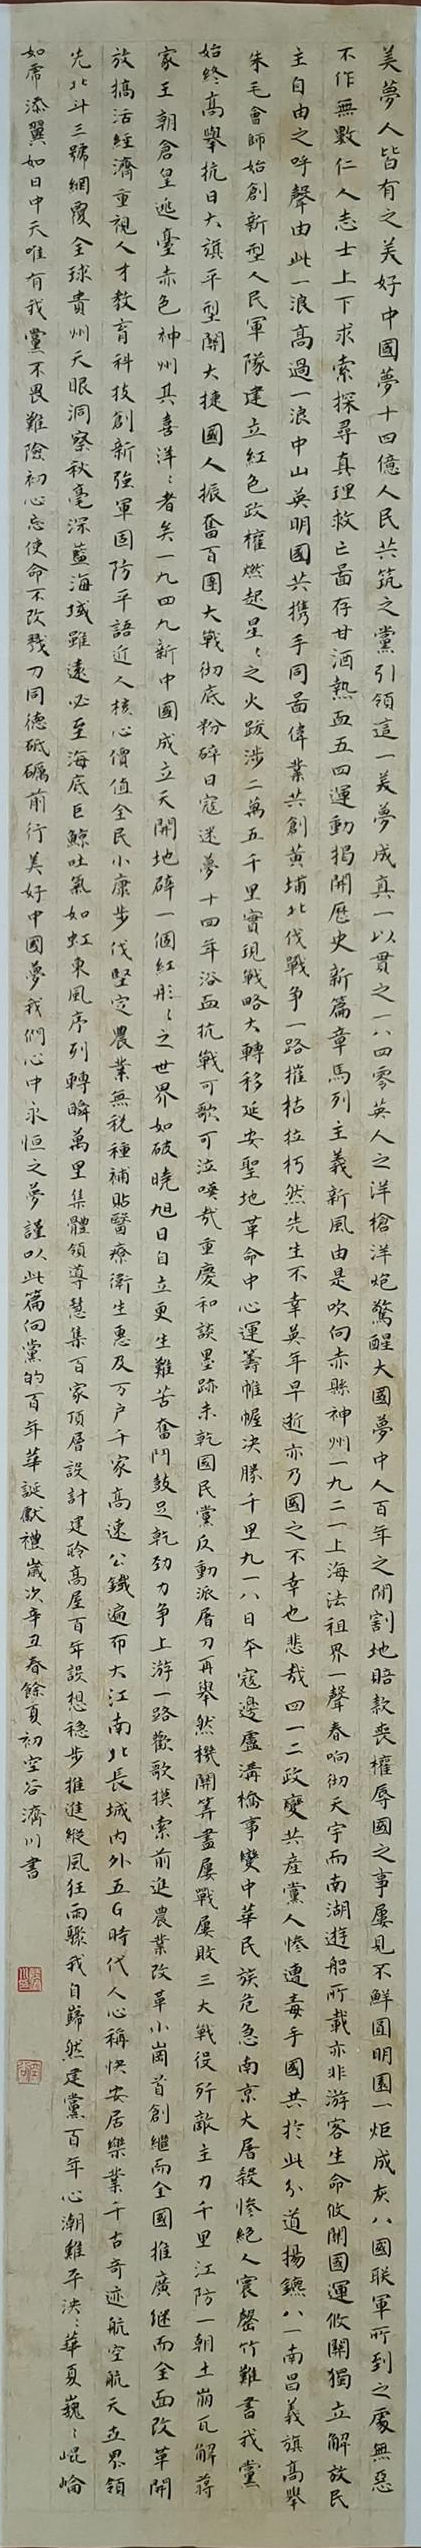 美夢人皆有之美好中國夢十四億人民共筑之黨引領這一美夢成真一以貫之一八四零英人之洋槍洋炮驚醒大國夢中人百年之間割地賠款喪權辱國之事屢見不鮮圓明園一炬成灰八國联軍所到之處無惡
不作無數仁人志士上下求索探尋真理救亡啚存甘洒熱血五四運動揭開歷史新篇章馬列主義新風由是吹向赤縣神州一九二一上海法祖界一聲春响彻天宇而南湖遊船所載亦非游客生命攸關國運攸關獨立解放民
主自由之呼聲由此一浪高過一浪中山英明國共携手同啚偉業共創黃埔北伐戰争一路摧枯拉朽然先生不幸英年早逝亦乃國之不幸也悲哉四一二政變共產黨人慘遭毒手國共於此分道揚鑣八一南昌義旗高舉
朱毛會師始創新型人民軍隊建立紅色政權燃起星〻之火跋涉二萬五千里實現戰略大轉移延安聖地革命中心運籌帷幄决勝千里九一八日夲寇邊盧溝橋事變中華民族危急南京大屠殺慘絕人寰罄竹難書我黨
始終高舉抗日大旗平型關大捷國人振奮百團大戰彻底粉碎日寇迷夢十四年浴血抗戰可歌可泣嗟哉重慶和談墨跡未乾國民黨反動派屠刀再舉然機關算盡屢戰屢敗三大戰役歼敵主力千里江防一朝土崩瓦解蒋
家王朝倉皇逃臺赤色神州其喜洋〻者矣一九四九新中國成立天開地碎一個紅彤〻之世界如破曉旭日自立更生難苦奮鬥鼓足乾劲力争上游一路歡歌摸索前進農業改革小崗首創繼而全國推廣继而全面改革開
放搞活經濟重視人才教育科技創新強軍固防平語近人核心價值全民小康步伐堅定農業無稅種補貼醫療衛生惠及万户千家高速公鐵遍布大江南北長城内外五G時代人心稱快安居樂業千古奇迹航空航天立界領
先北斗三號網覆全球貴州天眼洞察秋毫深藍海域雖遠必至海底巨鯨吐氣如虹東風序列轉瞬萬里集體領導慧集百家頂層設計建瓴高屋百年設想穩步推進縱風狂雨驟我自巋然建黨百年心潮難平泱〻華夏巍〻崐崘
如虎添翼如日中天唯有我黨不畏難險初心忘使命不改戮力同德砥礪前行美好中國夢我們心中永恒之夢謹以此篇向黨的百年華誕獻禮歲次辛丑春餘夏初空谷濟川書